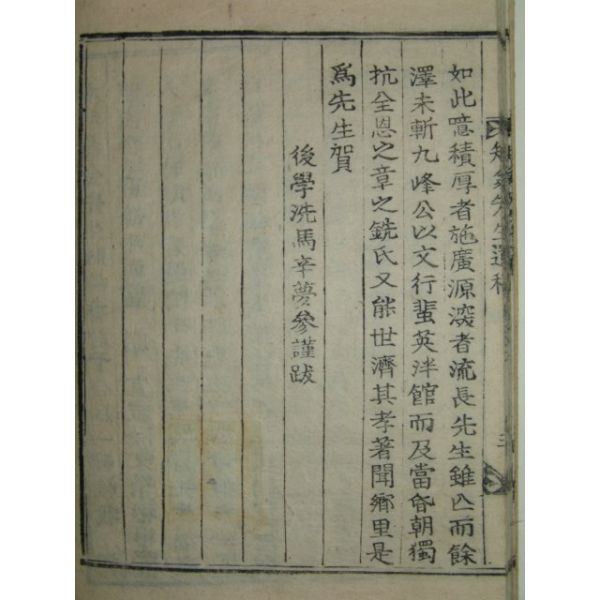 如此噫積厚者施廣源深者流長先生雖亾而餘
澤未斬九峰公以文行蜚英泮館而及當昏朝獨
抗全恩之章之銑氏又能世濟其孝著聞鄉里是
爲先生賀
後學洗馬辛夢參謹跋
先生遺稿